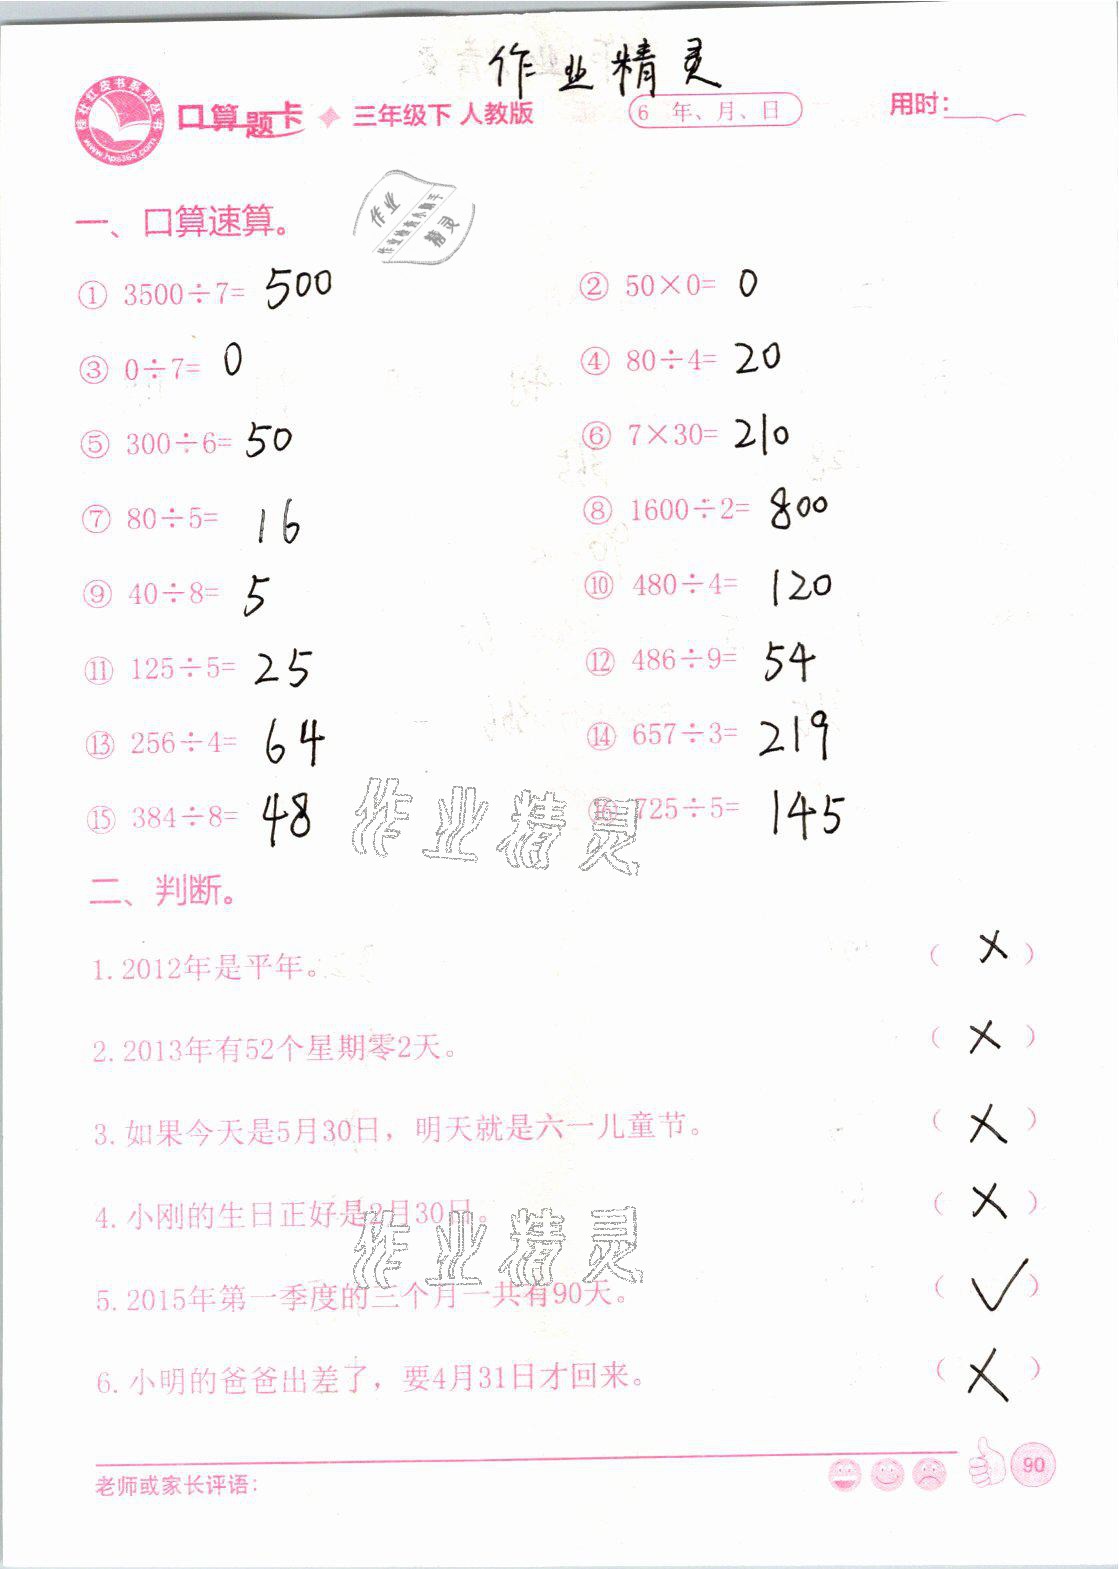 作业精灵
桂壮红皮书系列丛书
www.hps365.com
口算题卡 三年级下 人教版 6 年、月、日 用时：
一、口算速算。
作业
作业检查小助手
精灵
① 3500÷7= 500 ② 50×0= 0
③ 0÷7= 0 ④ 80÷4= 20
⑤ 300÷6= 50 ⑥ 7×30= 210
⑦ 80÷5= 16 ⑧ 1600÷2= 800
⑨ 40÷8= 5 ⑩ 480÷4= 120
⑪ 125÷5= 25 ⑫ 486÷9= 54
⑬ 256÷4= 64 ⑭ 657÷3= 219
⑮ 384÷8= 48 ⑯ 725÷5= 145
作业精灵
二、判断。
1.2012年是平年。 （ × ）
2.2013年有52个星期零2天。 （ × ）
3.如果今天是5月30日，明天就是六一儿童节。 （ × ）
4.小刚的生日正好是2月30日。 （ × ）
作业精灵
5.2015年第一季度的三个月一共有90天。 （ ✓ ）
6.小明的爸爸出差了，要4月31日才回来。 （ × ）
老师或家长评语： 90